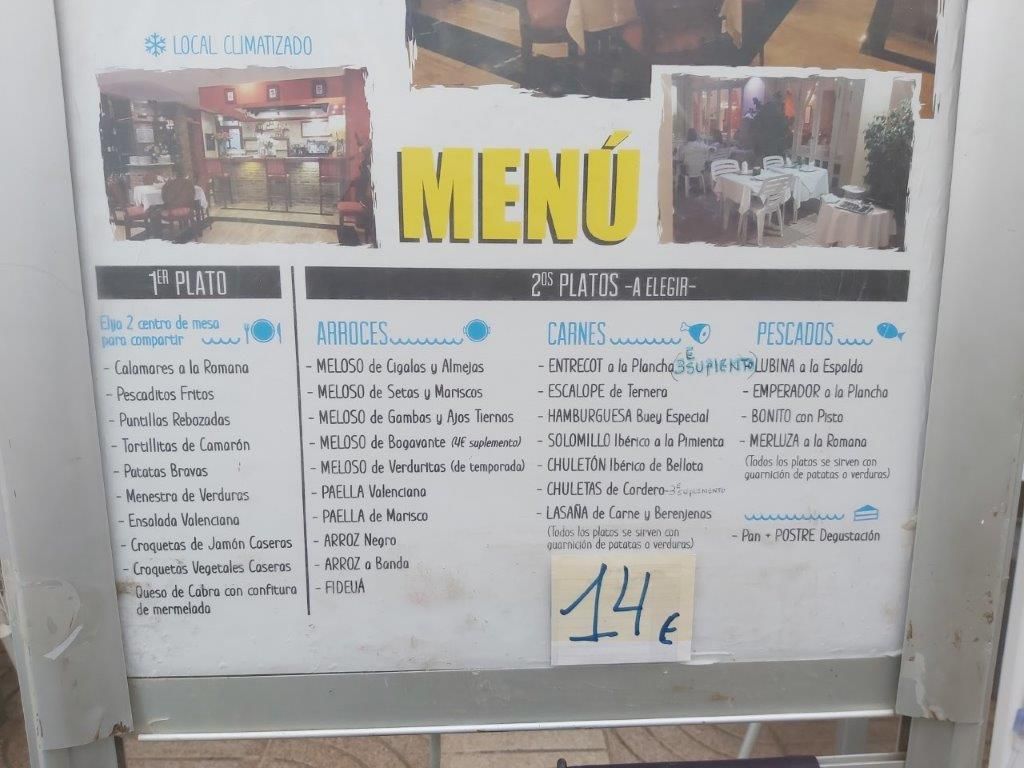 LOCAL CLIMATIZADO
MENÚ
1ER PLATO
Elija 2 centro de mesa
para compartir
- Calamares a la Romana
- Pescaditos Fritos
- Puntillas Rebozadas
- Tortillitas de Camarón
- Patatas Bravas
- Menestra de Verduras
- Ensalada Valenciana
- Croquetas de Jamón Caseras
- Croquetas Vegetales Caseras
- Queso de Cabra con confitura
de mermelada
2OS PLATOS -A ELEGIR-
ARROCES
- MELOSO de Cigalas y Almejas
- MELOSO de Setas y Mariscos
- MELOSO de Gambas y Ajos Tiernos
- MELOSO de Bogavante (4€ suplemento)
- MELOSO de Verduritas (de temporada)
- PAELLA Valenciana
- PAELLA de Marisco
- ARROZ Negro
- ARROZ a Banda
- FIDEUÁ
CARNES
- ENTRECOT a la Plancha (3€ SUPLENTO)
- ESCALOPE de Ternera
- HAMBURGUESA Buey Especial
- SOLOMILLO Ibérico a la Pimienta
- CHULETÓN Ibérico de Bellota
- CHULETAS de Cordero -3€ SUPLEMENTO
- LASAÑA de Carne y Berenjenas
(Todos los platos se sirven con
guarnición de patatas o verduras)
PESCADOS
LUBINA a la Espalda
- EMPERADOR a la Plancha
- BONITO con Pisto
- MERLUZA a la Romana
(Todos los platos se sirven con
guarnición de patatas o verduras)
- Pan + POSTRE Degustación
14 €